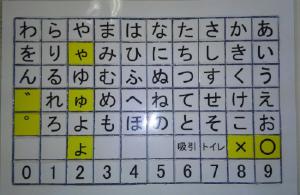 わ ら や ま は な た さ か あ
を り ゃ み ひ に ち し き い
ん る ゆ む ふ ぬ つ す く う
゛ れ ゅ め へ ね て せ け え
゜ ろ よ も ほ の と そ こ お
ょ 吸引 トイレ × ○
0 1 2 3 4 5 6 7 8 9